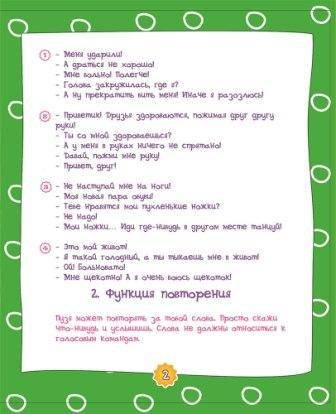 1 - Меня ударили!
- А драться не хорошо!
- Мне больно! Полегче!
- Голова закружилась, где я?
- А ну прекратить бить меня! Иначе я разозлюсь!
2 - Приветик! Друзья здороваются, пожимая друг другу
руки!
- Ты со мной здороваешься?
- А у меня в руках ничего не спрятано!
- Давай, пожми мне руку!
- Привет, друг!
3 - Не наступай мне на ноги!
- Моя новая пара обуви!
- Тебе нравятся мои пухленькие ножки?
- Не надо!
- Мои ножки... Иди где-нибудь в другом месте танцуй!
4 - Это мой живот!
- Я такой голодный, а ты тыкаешь мне в живот!
- Ой! Больновато!
- Мне щекотно! А я очень боюсь щекотки!
2. Функция повторения
Пузя может повторять за тобой слова. Просто скажи
что-нибудь и услышишь. Слова не должны относиться к
голосовым командам.
2